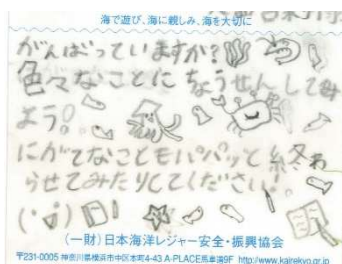 海で遊び、海に親しみ、海を大切に
がんばっていますか?
色々なことにちょうせんしてみ
よう。
にがてなこともパパッと終わ
らせてみたりしてください。
(一財)日本海洋レジャー安全・振興協会
〒231-0005 神奈川県横浜市中区本町4-43 A-PLACE馬車道9F http://www.kairekyo.gr.jp